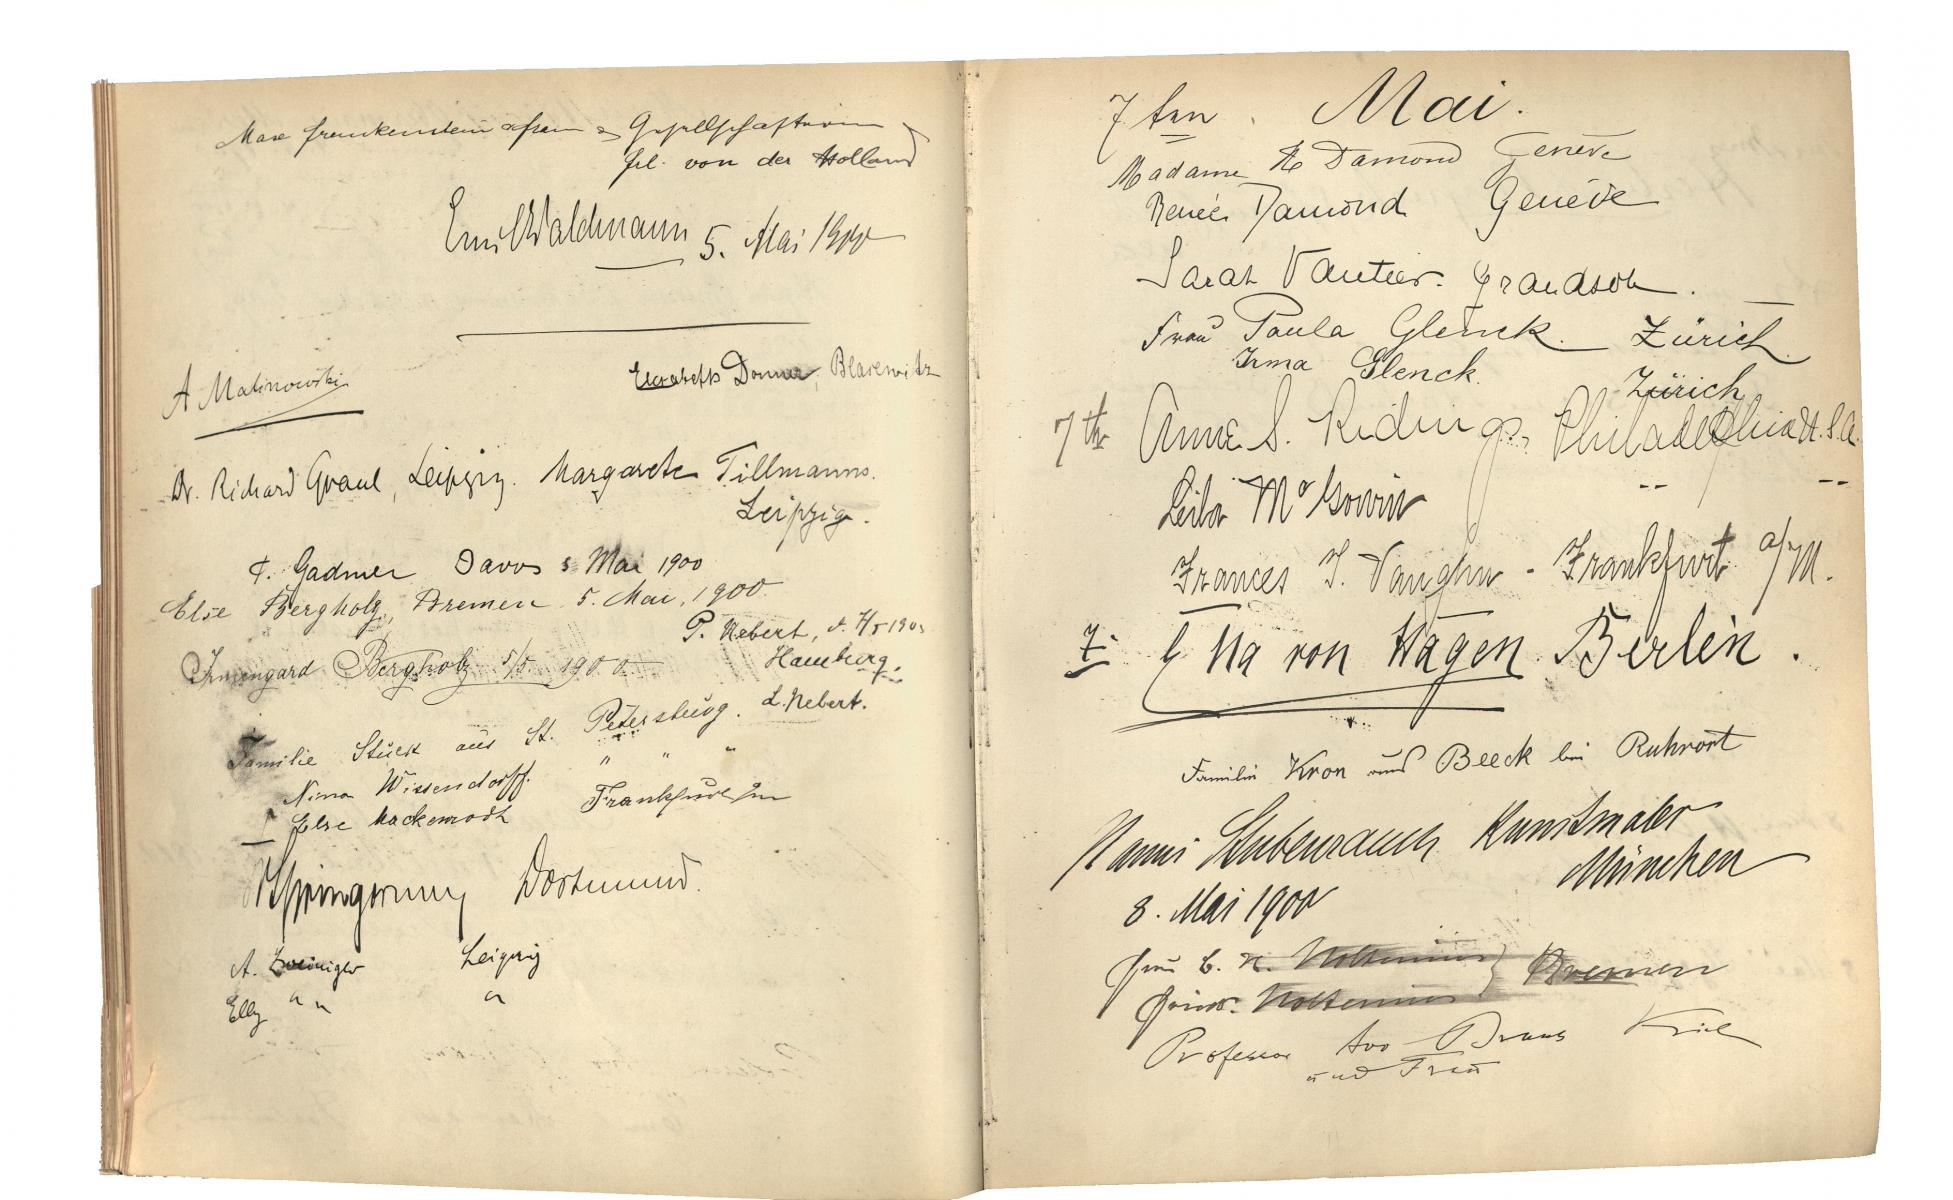 Max Frankenstein & Frau & Gesellschafterin
frl. von der Holland
Emil Waldmann 5. Mai 1900
Elisabeth Donner, Blasewitz
A Malinowski
Dr. Richard Graul, Leipzig. Margarete Tillmanns.
Leipzig.
F. Gadmer Davos 5 Mai 1900
Else Bergholz, Bremen 5. Mai. 1900
P. Nebert,
Irmengard Bergholz 5/5 1900
Hamburg.
L. Nebert.
Familie Stuck aus St. Petersburg.
Nina Wissendorff. " " "
Else Mackenrodt Frankfurt
Springorum Dortmund.
A. Zweiniger Leipzig
Elly " " "
7ten. Mai.
Madame Damond Genève
Renée Damond Genève
Sarah Vautier. Grandson.
Frau Paula Glenck. Zürich
Irma Glenck. Zürich
7th Anne S. Ridings, Philadelphia U.S.A.
Leila McGowin " "
Frances J. Vaughn - Frankfurt a/M.
7. Ella von Hagen Berlin.
Familie Kron aus Beeck bei Ruhrort
Nanni Stubenrauch Kunstmaler
München
8. Mai 1900
Frau C. H. Noltenius } Bremen
Noltenius
Professor Ivo Bruns Kiel
und Frau